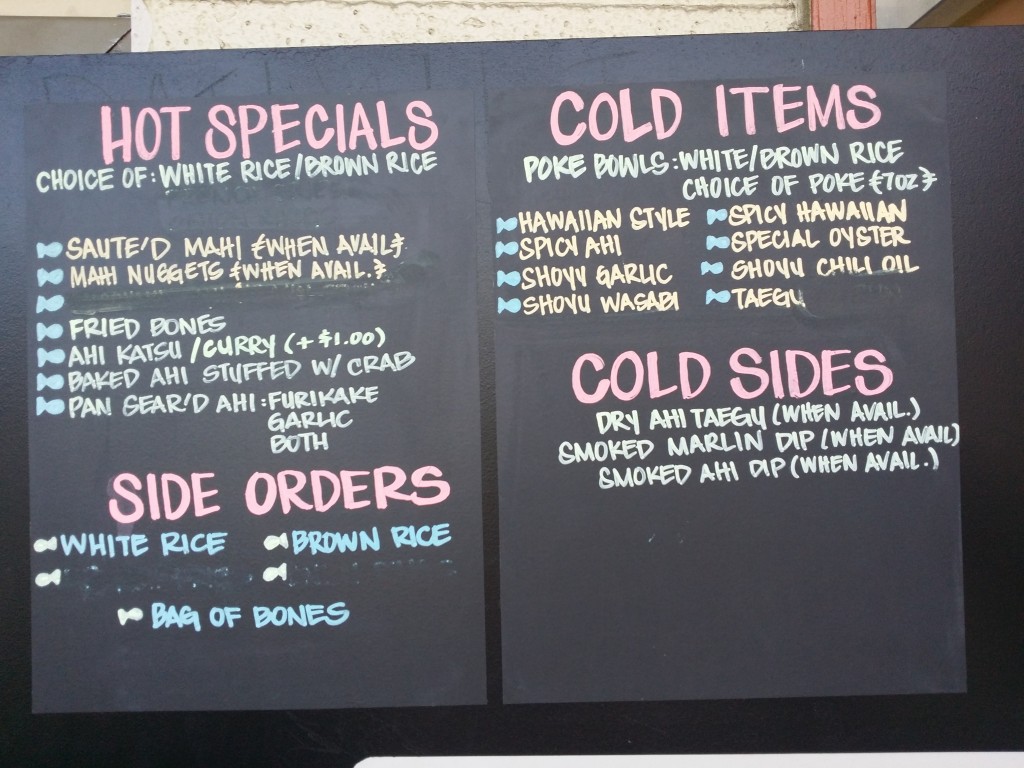 HOT SPECIALS
CHOICE OF: WHITE RICE/BROWN RICE
SAUTE'D MAHI {WHEN AVAIL}
MAHI NUGGETS {WHEN AVAIL.}
FRIED BONES
AHI KATSU /CURRY (+$1.00)
BAKED AHI STUFFED W/ CRAB
PAN SEAR'D AHI: FURIKAKE
GARLIC
BOTH
SIDE ORDERS
WHITE RICE
BROWN RICE
BAG OF BONES
COLD ITEMS
POKE BOWLS: WHITE/BROWN RICE
CHOICE OF POKE {7OZ}
HAWAIIAN STYLE
SPICY HAWAIIAN
SPICY AHI
SPECIAL OYSTER
SHOYU GARLIC
SHOYU CHILI OIL
SHOYU WASABI
TAEGU
COLD SIDES
DRY AHI TAEGU (WHEN AVAIL.)
SMOKED MARLIN DIP (WHEN AVAIL)
SMOKED AHI DIP (WHEN AVAIL.)